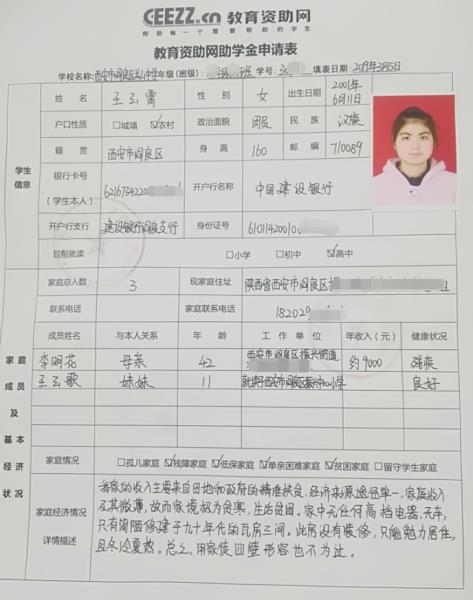 CEEZZ.cn 教育资助网
帮助每一个需要帮助的学生
教育资助网助学金申请表
学校名称: 西安市阎良区 年级(班级): 班 学号: 填表日期: 2019年3月5日
学生信息
姓名 王云霄 性别 女 出生日期 2001年6月11日
户口性质 □城填 ☑农村 政治面貌 团员 民族 汉族
籍贯 西安市阎良区 身高 160 邮编 710089
银行卡号(学生本人) 6216734220 开户行名称 中国建设银行
开户行支行 建设银行阎良支行 身份证号 610114200106
目前就读 □小学 □初中 ☑高中
家庭成员及基本经济状况
家庭总人数 3 现家庭住址 陕西省西安市阎良区振
联系电话 家庭联系电话 182029
成员姓名 与本人关系 年龄 工作单位 年收入(元) 健康状况
李明花 母亲 42 西安市阎良区振兴街道 约9000 残疾
王云歌 妹妹 11 就读于西安市阎良区 小学 良好
家庭情况 □孤儿家庭 ☑残障家庭 ☑低保家庭 ☑单亲困难家庭 ☑贫困家庭 □留守学生家庭
家庭经济情况详情描述
我家的收入主要来自田地和政府的精准扶贫,经济来源途径单一,家庭收入
及其微薄,故而家境极为贫寒,生活贫困。家中无任何高档电器,无车,
只有简陋修建于九十年代的瓦房三间。此房没有装修,只能勉力居住,
且冬冷夏热。总之,用家徒四壁形容也不为过。